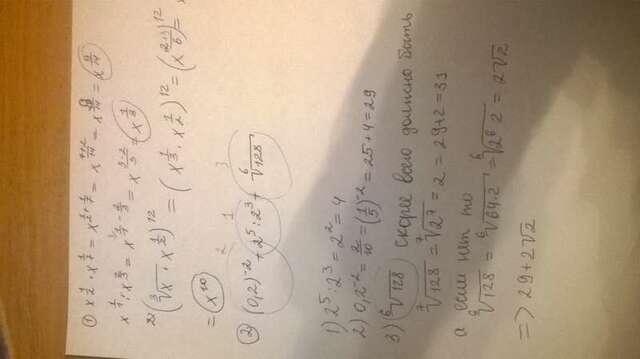 ① x^{1/2} · x^{1/7} = x^{1/2 + 1/7} = x^{9/14} = x^{9/14}
= x^{1/3}
2) (∛x · x^{1/2})^{12} = (x^{1/3} · x^{1/2})^{12} = (x^{2+3/6})^{12} =
= x^{10}
② (0,2)^{-2} + 2^5 : 2^3 + ⁶√128
1) 2^5 : 2^3 = 2^2 = 4
2) 0,2^{-2} = 2/10 = (1/5)^{-2} = 25 + 4 = 29
3) ⁶√128 скорее всего должно быть
⁷√128 = ⁷√2^7 = 2 = 29 + 2 = 33
а если нет то
⁶√128 = ⁶√64·2 = ⁶√2^6·2 = 2√2
=> 29 + 2√2